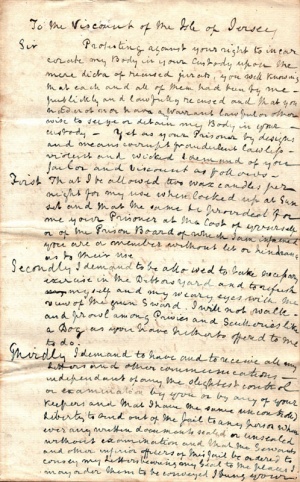 To the Viscount of the Isle of Jersey
Sir Protesting against your right to incar
cerate my Body in your Custody upon the
mere dicta of recused jurats, you well knowing
that each and all of them had been by me
publickly and lawfully recused and that you
had not a Warrant lawful or other
wise to seize or detain my Body in your
custody – Yet as your Prisoner by designs
and means corrupt fraudulent lawless
violent and wicked I demand of you
Jailor and Viscount as follows –
First That I be allowed two wax candles per
night for my use when locked up at Sun
set and that the same be provided for
me your Prisoner at the Cost of yourself
or of the Prison Board of which I am informed
you are a member without let or hindrance
as to their use
Secondly I demand to be allowed to take necessary
exercise in the Debtors Yard and to refresh
myself and my weary eyes with the
view of the green Sward. I will not walk
and prowl among Privies and Sculleries like
a Dog as you have hitherto offered to me
to do.
Thirdly I demand to have and to receive all my
letters and other communications
independent of any the slightest control
or examination by you or by any of your
Keepers and that I have the same uncontrolled
liberty to send out of the Jail to any person whom
ever any written documents sealed or unsealed
without examination and that the Stewards
and other inferior officers of this Jail be ordered to
convey my letters bearing my Seal to the places I
may order them to be conveyed